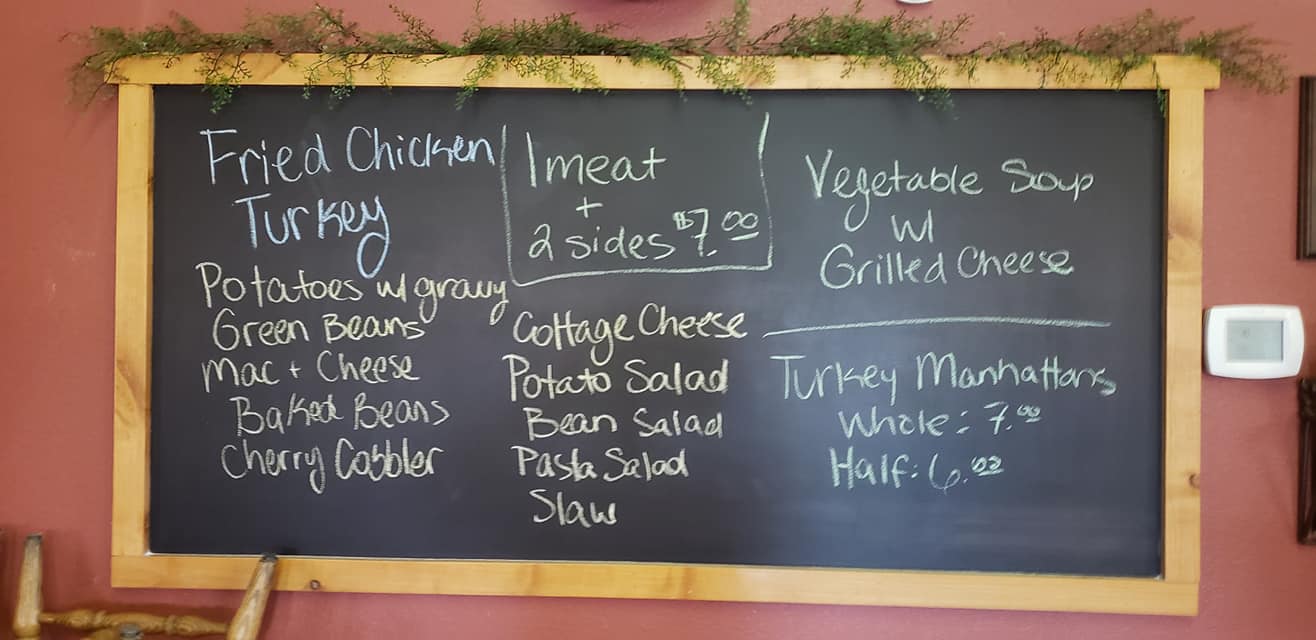 Fried Chicken
Turkey
Potatoes w/ gravy
Green Beans
Mac + Cheese
Baked Beans
Cherry Cobbler
1 meat
+
2 sides $7.00
Cottage Cheese
Potato Salad
Bean Salad
Pasta Salad
Slaw
Vegetable Soup
w/
Grilled Cheese
Turkey Manhattans
Whole: 7.00
Half: 6.00